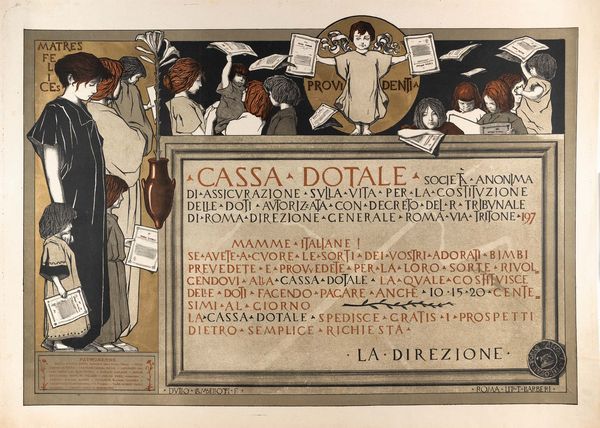 MATRES
FELICES
PROVIDENTIA
CASSA DOTALE SOCIETÀ ANONIMA
DI ASSICVRAZIONE SVLLA VITA PER LA COSTITVZIONE
DELLE DOTI AVTORIZZATA CON DECRETO DEL R TRIBVNALE
DI ROMA DIREZIONE GENERALE ROMA VIA TRITONE 197
MAMME ITALIANE!
SE AVETE A CVORE LE SORTI DEI VOSTRI ADORATI BIMBI
PREVEDETE E PROVVEDETE PER LA LORO SORTE RIVOL=
CENDOVI ALLA CASSA DOTALE LA QVALE COSTITVISCE
DELLE DOTI FACENDO PAGARE ANCHE 10 15 20 CENTE=
SIMI AL GIORNO
LA CASSA DOTALE SPEDISCE GRATIS I PROSPETTI
DIETRO SEMPLICE RICHIESTA
LA DIREZIONE
PATRONESSE
DVILIO CAMBELLOTTI F
ROMA LIT. BARBERI